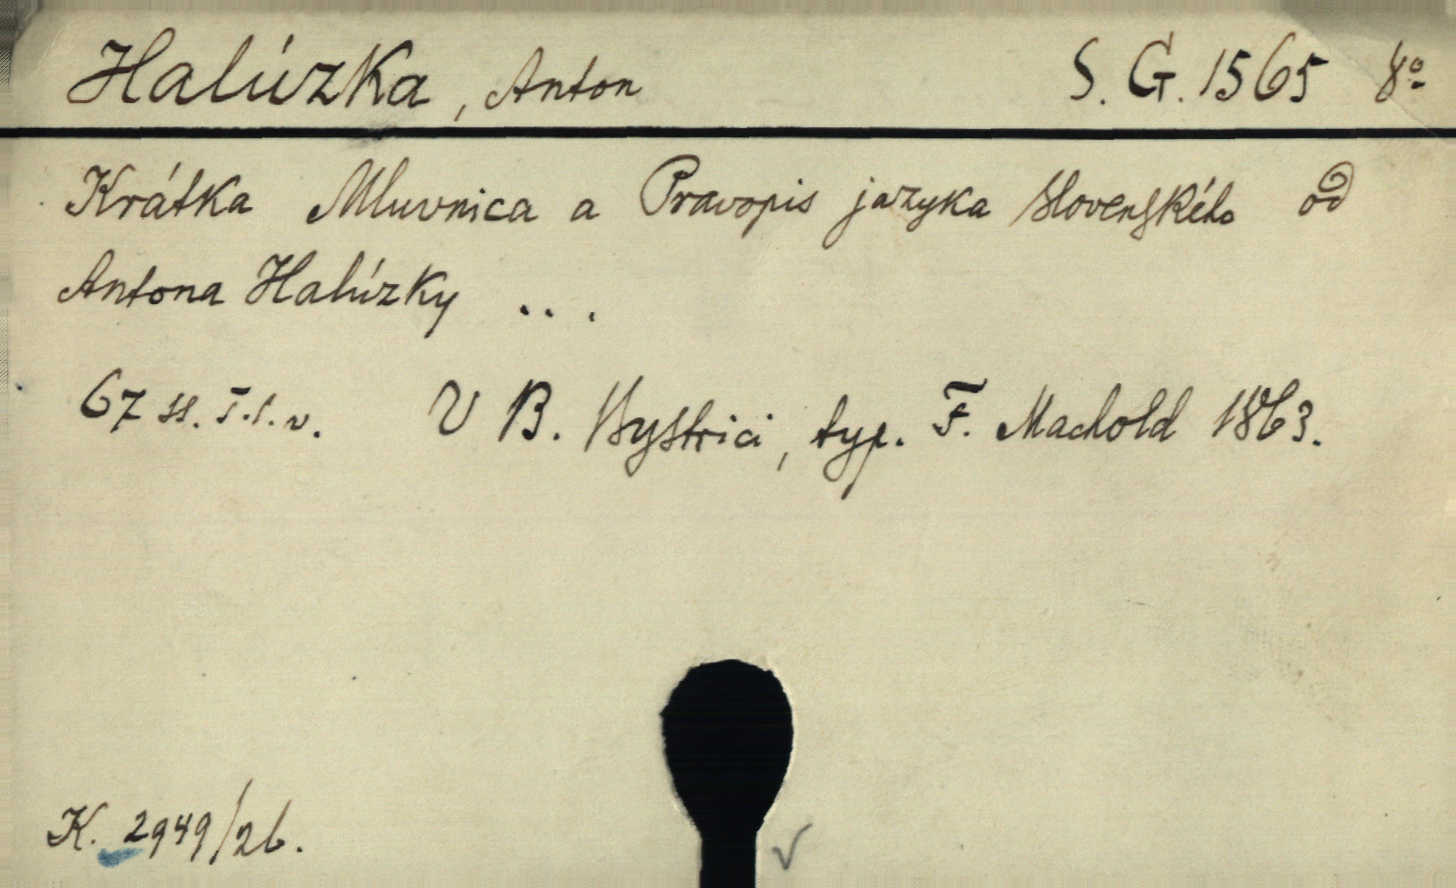 Halúzka, Anton S. G. 1565 8º
Krátka Mluvnica a Pravopis jazyka slovenského od
Antona Halúzky ...
67 ss. T. l. v. V B. Bystrici, typ. F. Machold 1863.
K. 2949/26.